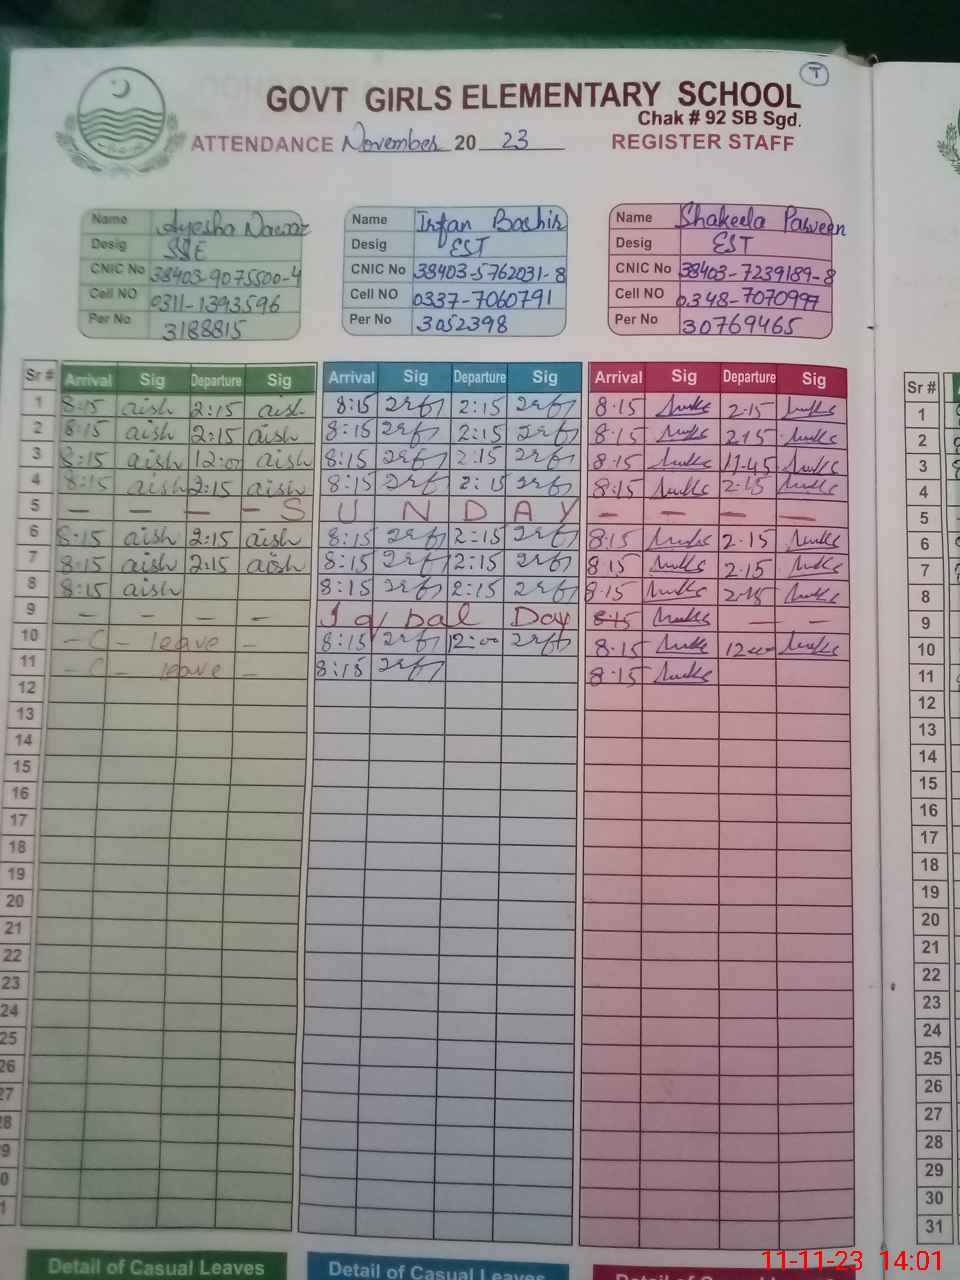 T
GOVT GIRLS ELEMENTARY SCHOOL
Chak # 92 SB Sgd.
ATTENDANCE November 20 23 REGISTER STAFF
Name Ayesha Nawaz Name Irfan Bashir Name Shakeela Parveen
Desig SSE Desig EST Desig EST
CNIC No 38403-9075500-4 CNIC No 38403-5762031-8 CNIC No 38403-7239189-8
Cell NO 0311-1393596 Cell NO 0337-7060791 Cell NO 0348-7070997
Per No 3188815 Per No 3052398 Per No 30769465
Sr # Arrival Sig Departure Sig Arrival Sig Departure Sig Arrival Sig Departure Sig Sr #
1 8:15 aish 2:15 aish 8:15 2:15 8.15 2.15 1
2 8:15 aish 2:15 aish 8:15 2:15 8.15 2.15 2
3 8:15 aish 12:00 aish 8:15 2:15 8.15 11.45 3
4 8:15 aish 2:15 aish 8:15 2:15 8.15 2.15 4
5 - - - - S U N D A Y - - - - 5
6 8:15 aish 2:15 aish 8:15 2:15 8.15 2.15 6
7 8:15 aish 2:15 aish 8:15 2:15 8.15 2.15 7
8 8:15 aish 8:15 2:15 8.15 2.15 8
9 - - - - Iqbal Day 8.15 - - 9
10 - C - leave - 8:15 12:00 8.15 12:00 10
11 - C - leave - 8:15 8.15 11
12 12
13 13
14 14
15 15
16 16
17 17
18 18
19 19
20 20
21 21
22 22
23 23
24 24
25 25
26 26
27 27
28 28
29 29
30 30
31 31
Detail of Casual Leaves Detail of Casual Leaves
11-11-23 14:01